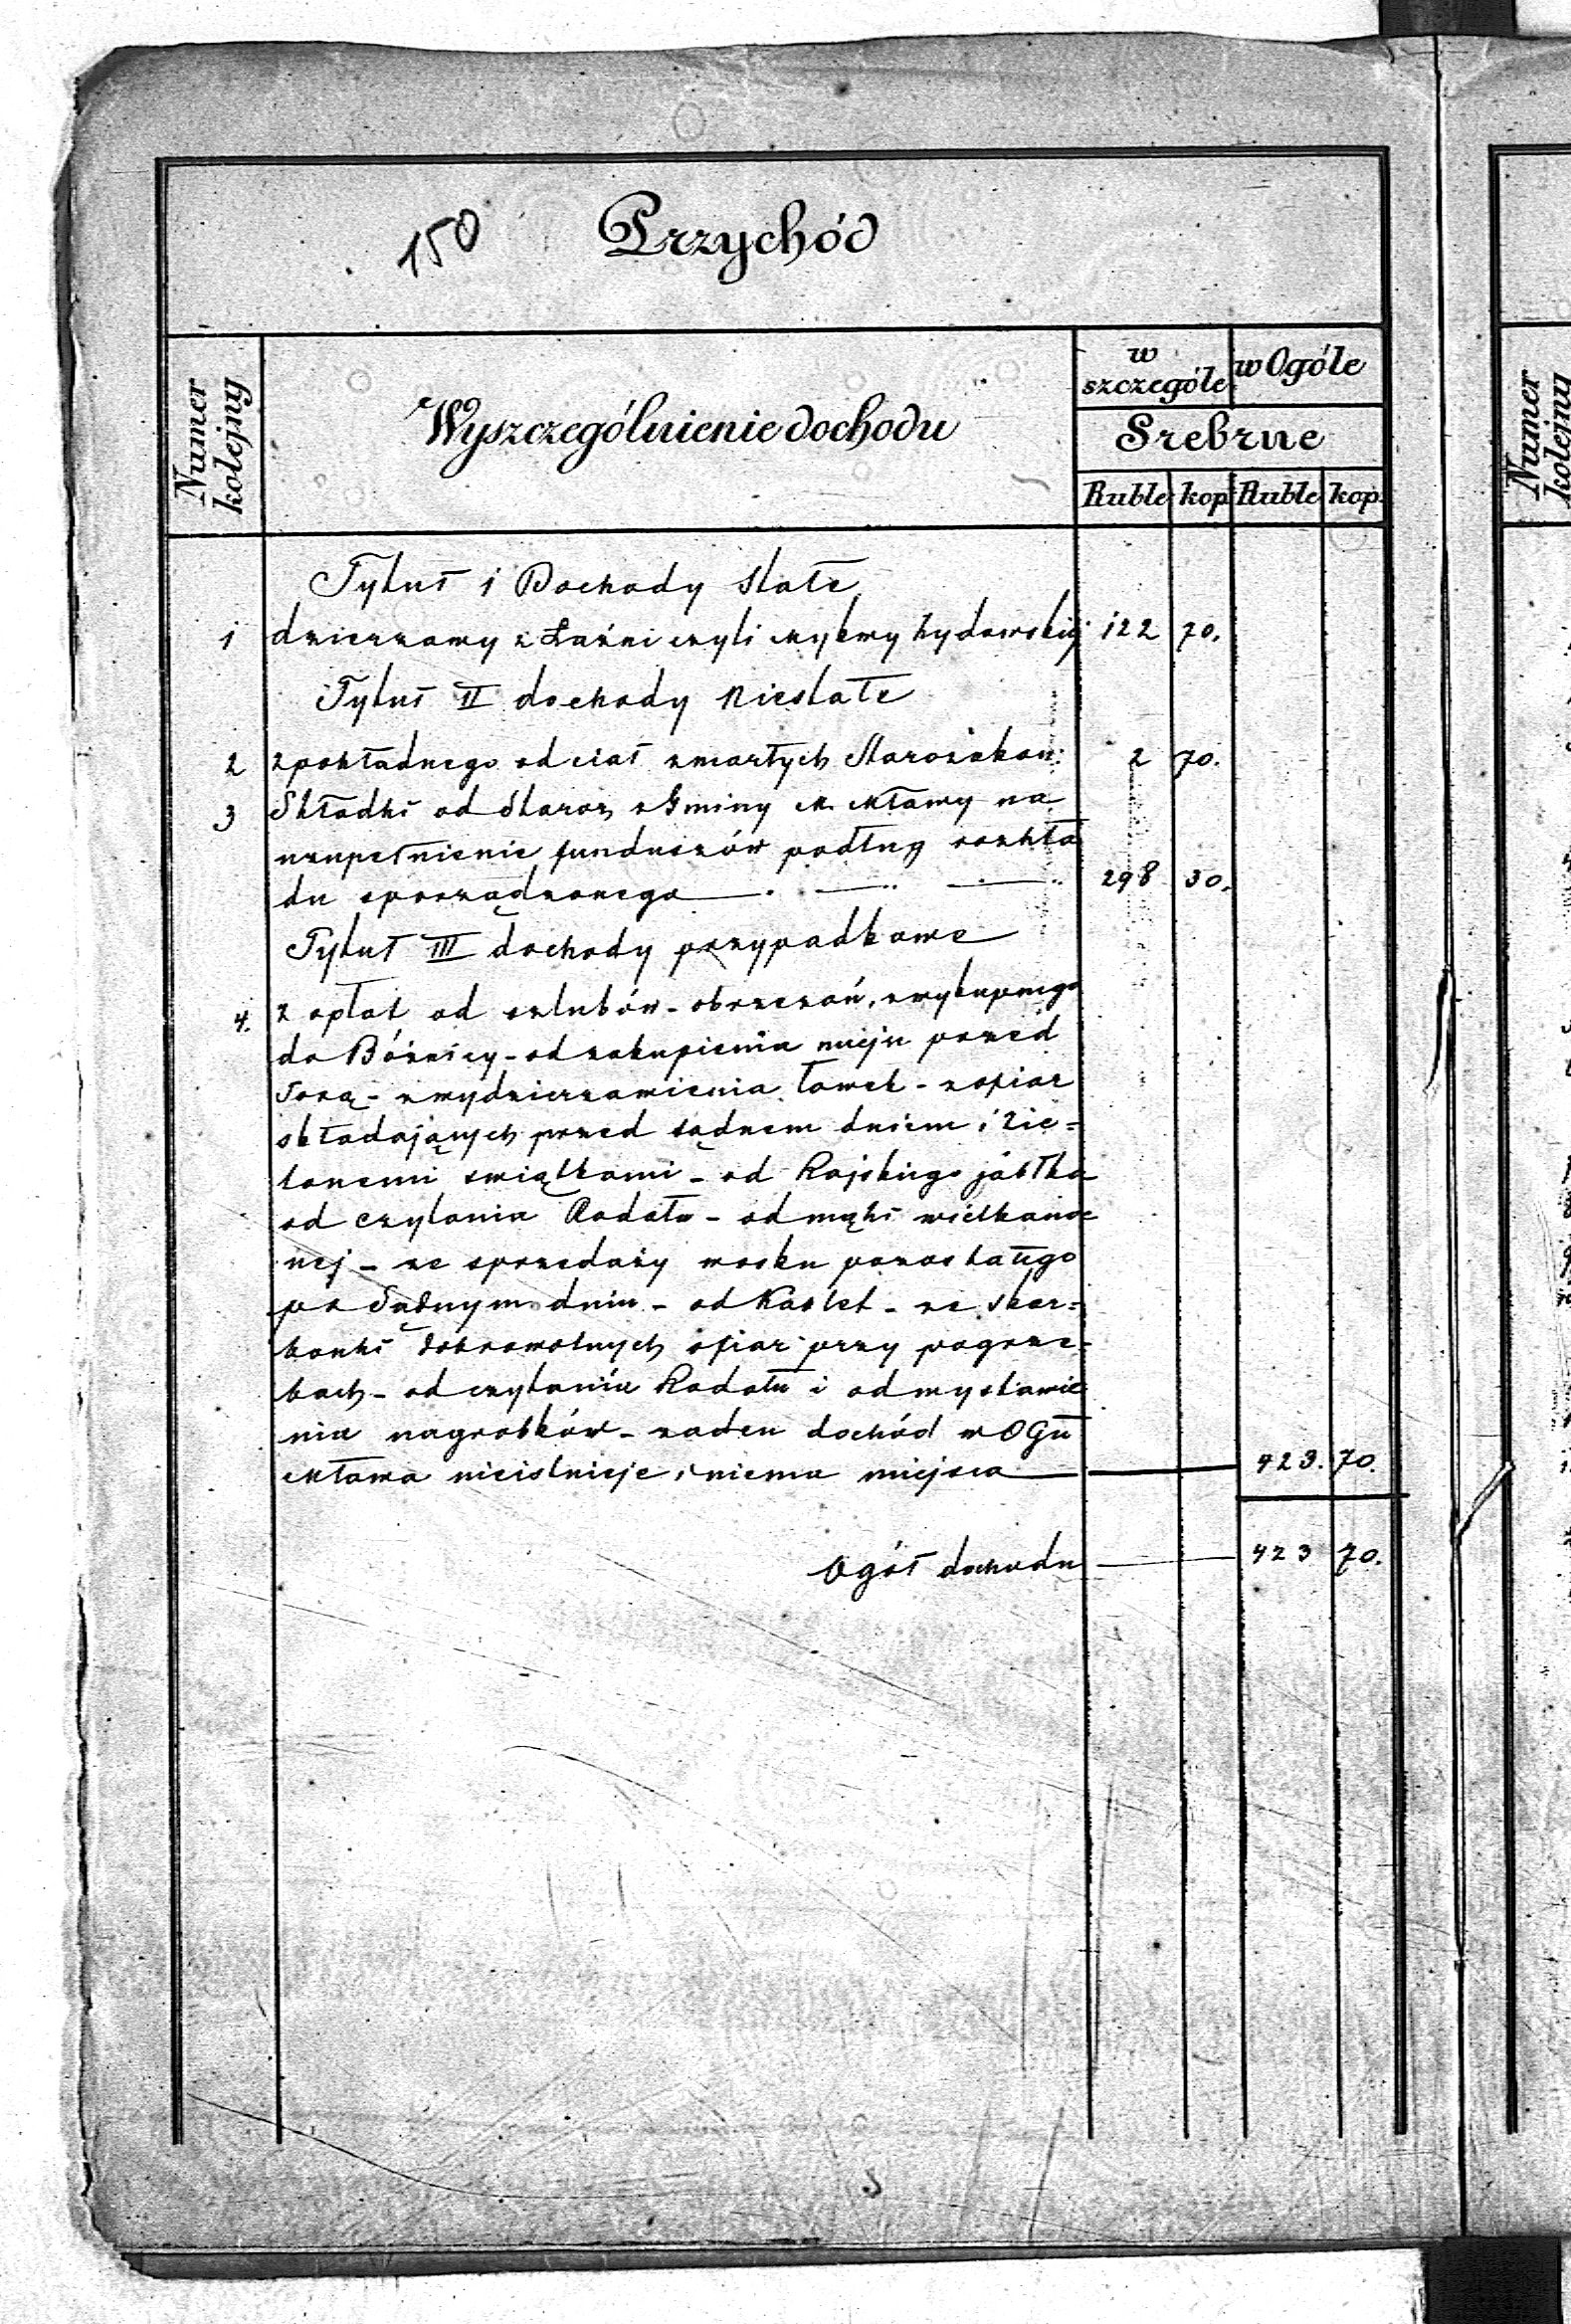 150 Przychód
Numer kolejny
Wyszczególnienie dochodu
w szczególe
w Ogóle
Srebrne
Ruble kop. Ruble kop.
Tytuł i Dochody Stałe
1 dzierzawy z Łaźni czyli Mykwy Żydowskiej 122 70.
Tytuł II dochody Niestałe
2 z pokładnego od ciał zmarłych Starozakon: 2 70.
3 Składki od Staroz z Gminy M. Mławy na
uzupełnienie funduszów podług rozkła
du sporządzonego 298 30.
Tytuł III dochody przypadkowe
4. z opłat od szlubów - obrzezań, z wykupnego
do Bóżnicy - od zakupienia miejsc przed
Torą - z wydzierzawienia ławek - z ofiar
składających przed sądnem dniem i Zie=
lonemi swiątkami - od Rajskiego jabłka
od czytania Rodału - od mąki wielkanoc
nej - ze sprzedaży wosku pozostałego
po Sądnym dniu - od Kozlet - ze skar=
bonki dobrowolnych ofiar przy pogrze=
bach - od czytania Rodału i od wystawie
nia nagrobków - zaden dochód w OGu
Mława nieistnieje, i niema miejsca 423. 70.
Ogół dochodu 423 70.
Numer kolejny